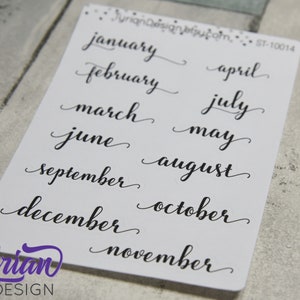 ST-10014
january
april
february
july
march
may
june
august
september
october
december
november
DESIGN